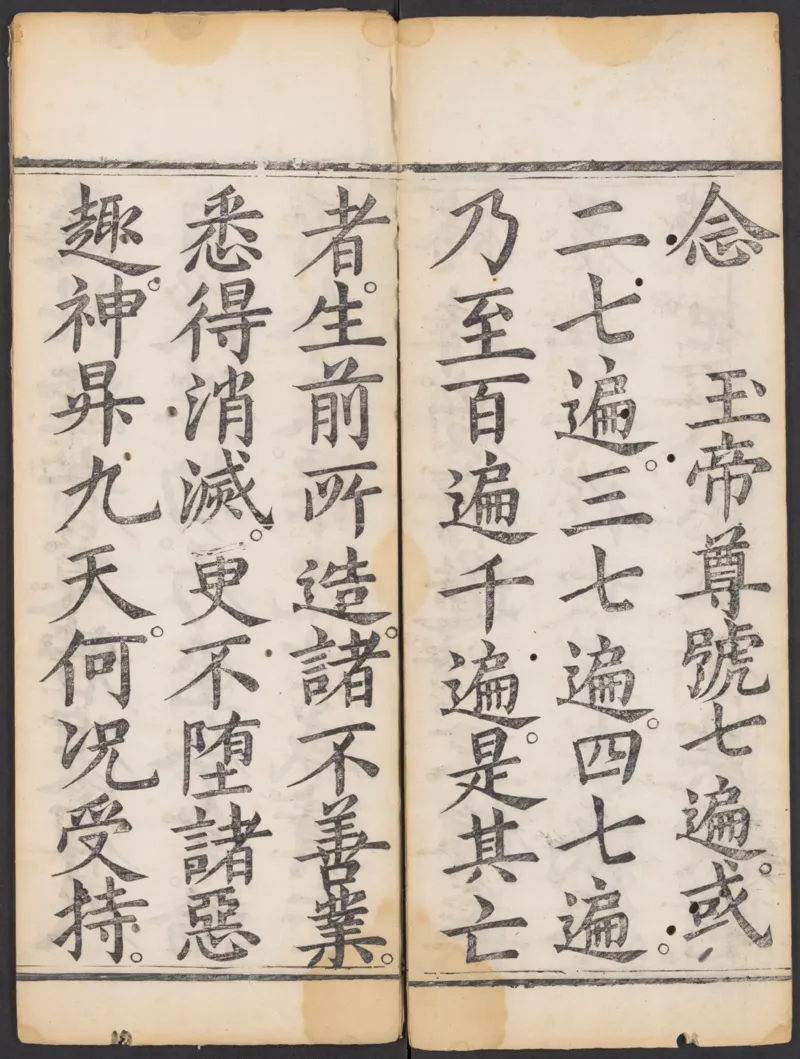 念　玉帝尊號七遍。或
二七遍。三七遍。四七遍。
乃至百遍千遍。是其亡
者。生前所造。諸不善業。
悉得消滅。更不墮諸惡
趣。神昇九天。何況受持。